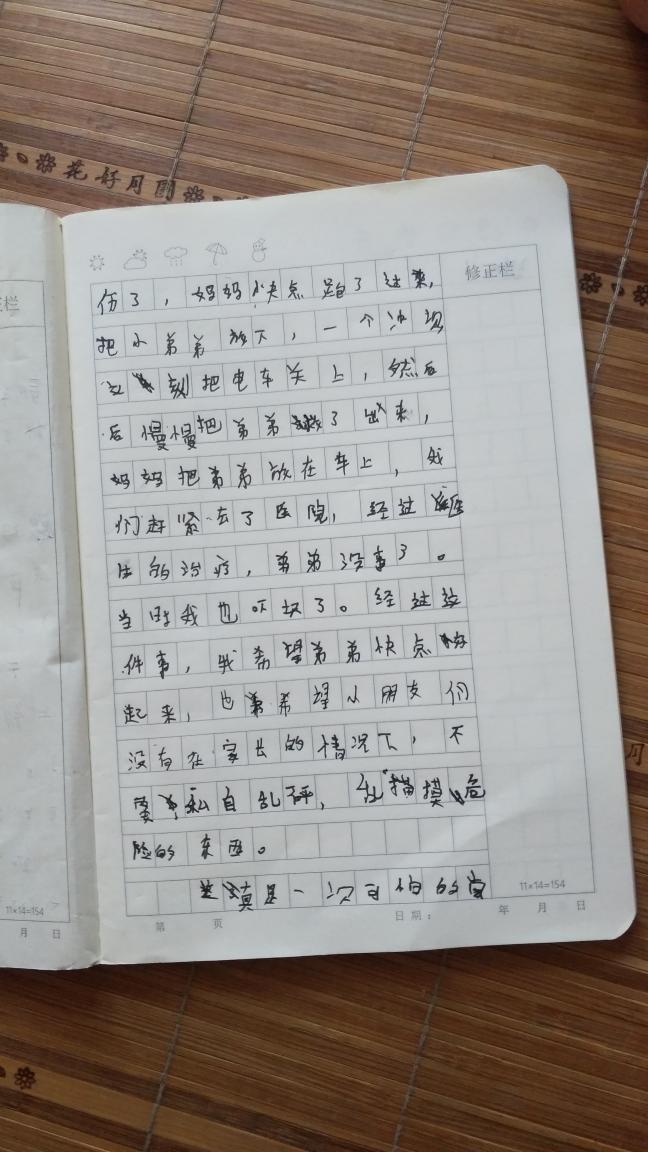 花好月圆
修正栏
伤了，妈妈快点跑了过来，
把小弟弟放下，一个
刻把电车关上，然后
后慢慢把弟弟救了出来，
妈妈把弟弟放在车上，我
们赶紧去了医院，经过医
生的治疗，弟弟没事了。
当时我也吓坏了。经过这
件事，我希望弟弟快点好
起来，也希望小朋友们
没有在家长的情况下，不
要私自乱碰，乱摸危
险的东西。
真是一次可怕的
11×14=154
第 页 日期： 年 月 日
栏
11×14=154
月 日
月